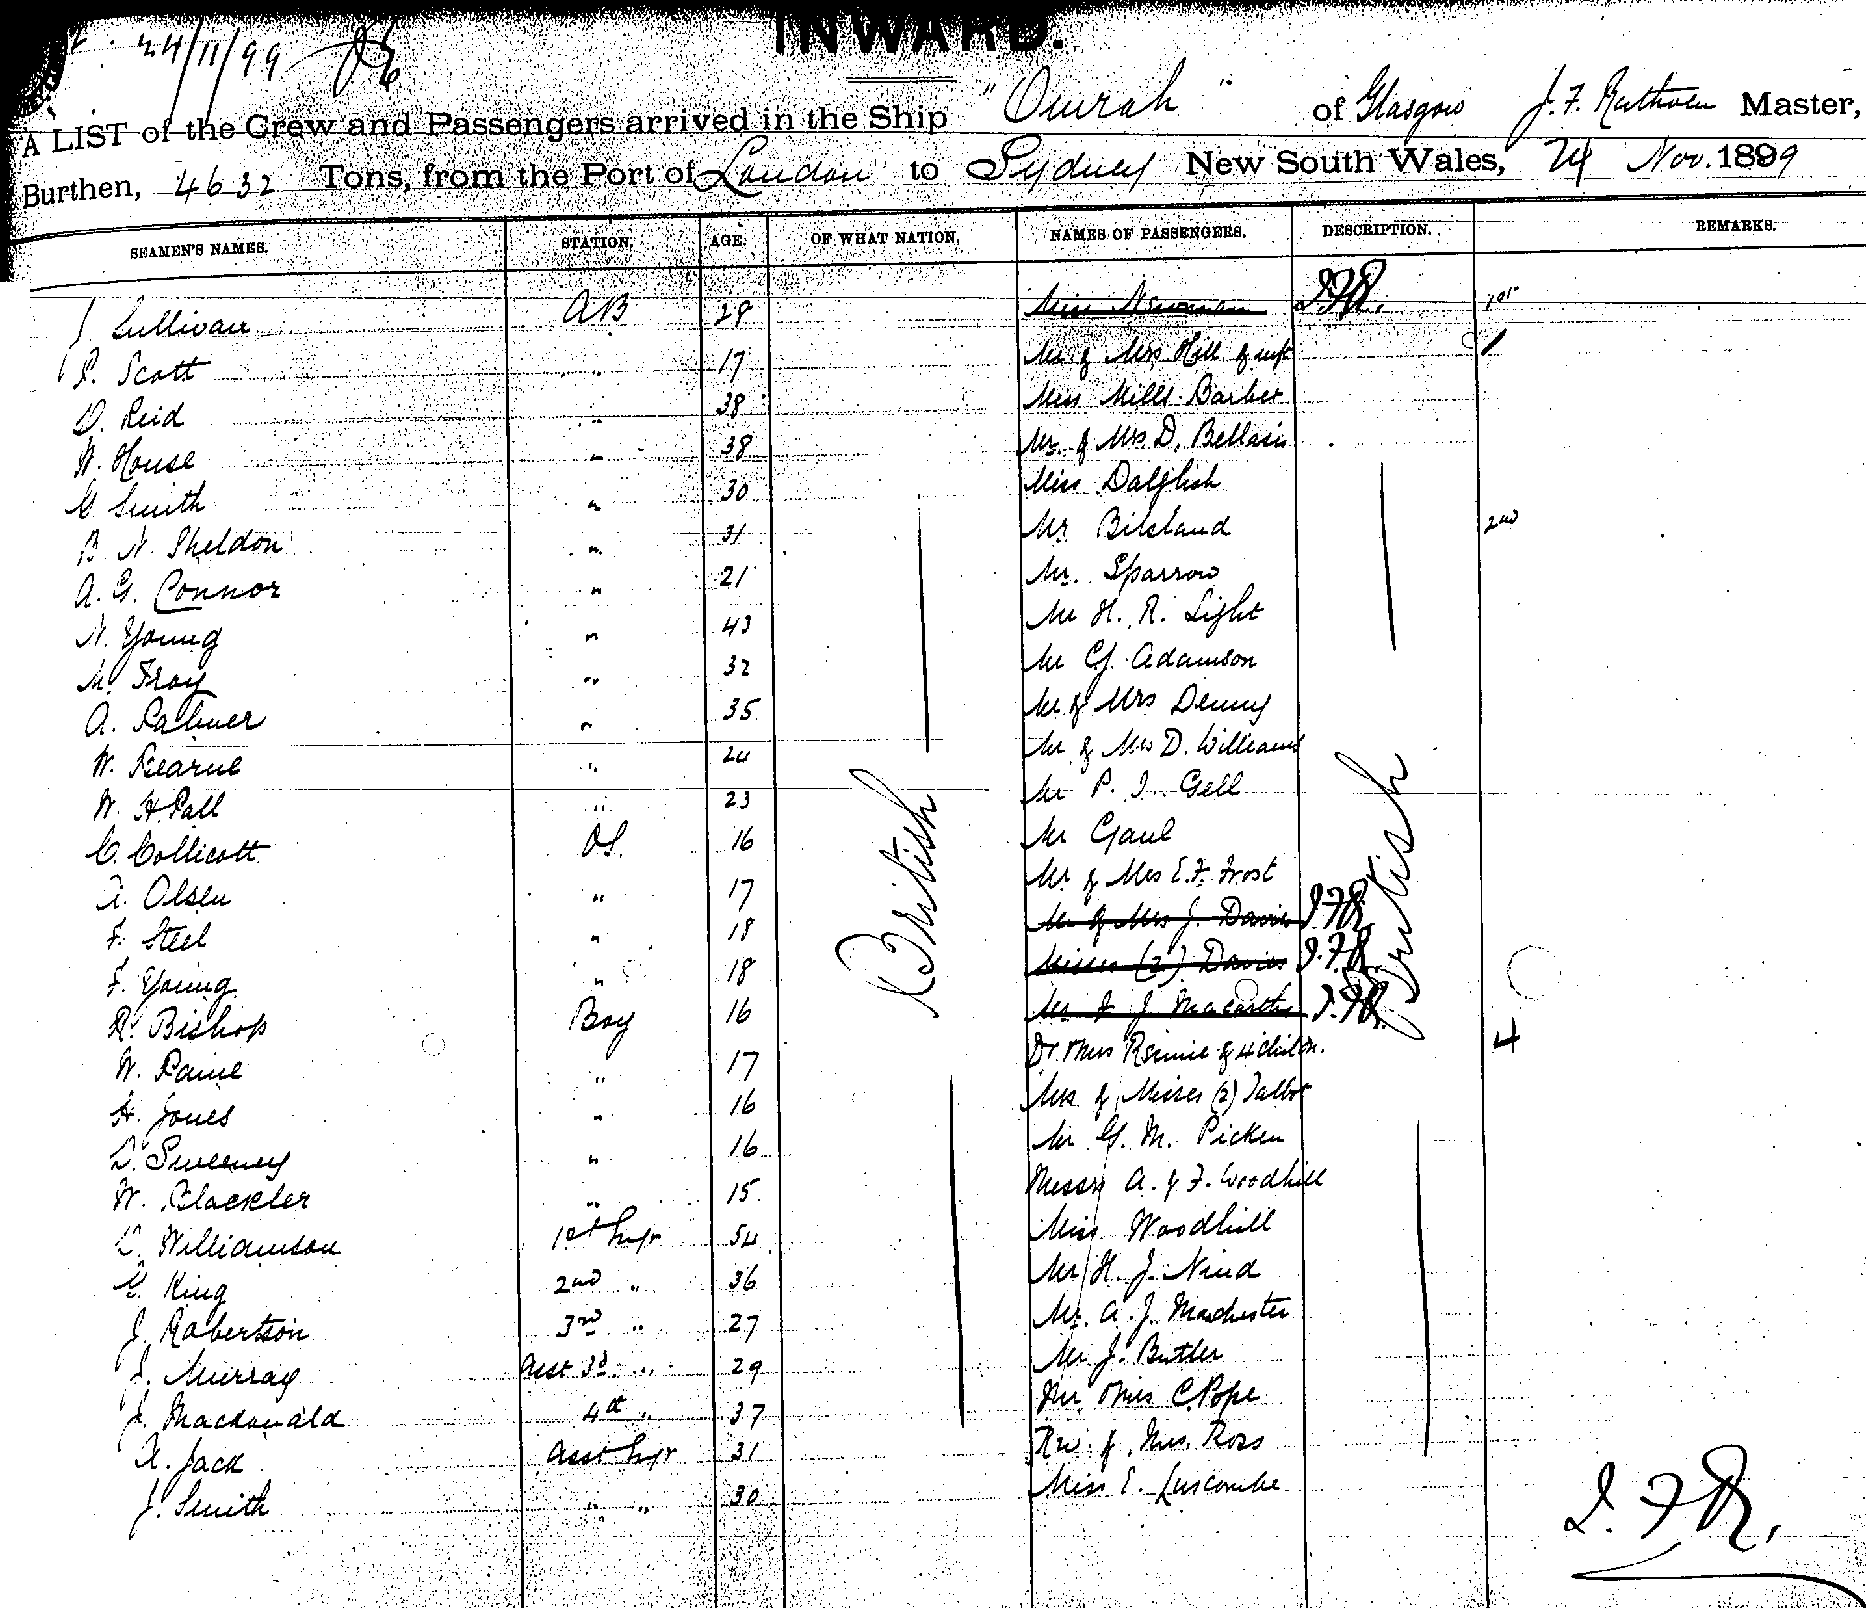 24/11/99
INWARD.
A LIST of the Crew and Passengers arrived in the Ship "Omrah" of Glasgow J. F. Ruthven Master,
Burthen, 4632 Tons, from the Port of London to Sydney New South Wales, 24 Nov. 1899
SEAMEN'S NAMES. STATION. AGE. OF WHAT NATION. NAMES OF PASSENGERS. DESCRIPTION. REMARKS.
J Sullivan AB 28 Miss Newman J.F.R. 1st
P. Scott " 17 Mr & Mrs Hill & inft
D. Reid " 38 Miss Mills Barber
W. House " 38 Mr & Mrs D. Bellasis
G Smith " 30 Miss Dalglish
B. N. Sheldon " 31 Mr Bilsland 2nd
A. G. Connor " 21 Mr. Sparrow
N. Young " 43 Mr H. R. Light
M. Troy " 32 Mr G. Adamson
A. Palmer " 35 Mr & Mrs Denny
W. Kearne " 24 Mr & Mrs D. Williams
W. H. Pall " 23 Mr P. J. Gell
C. Collicott OS. 16 Mr Gaul
A. Olsen " 17 Mr & Mrs E. F. Frost
F. Steel " 18 Mr & Mrs J. Davies J.F.R.
F. Young " 18 Misses (2) Davies J.F.R.
R. Bishop Boy 16 Mr & J Macarthur J.F.R.
British British
W. Paine " 17 Dr. & Mrs Rennie & 4 childn. 4
H. Jones " 16 Mrs & Misses (2) Talbot
D. Sweeney " 16 Mr G. M. Picken
W. Blackler " 15 Messrs A. & F. Woodhill
D. Williamson 1st Engr 54 Miss Woodhill
G. King 2nd " 36 Mr H. J. Nind
J. Robertson 3rd " 27 Mr. A. J. Manchester
J. Murray Asst 3d " 29 Mr J. Butler
J. Macdonald 4th " 37 Mr & Mrs C. Pope
A. Jack Asst Engr 31 Rev & Mrs. Ross
J. Smith " " 30 Miss E. Luscombe
J. F. R.